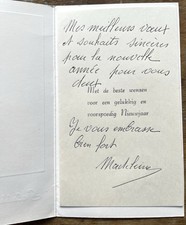 Mes meilleurs vœux
et souhaits sincères
pour la nouvelle
année pour vous
deux
Met de beste wensen
voor een gelukkig en
voorspoedig Nieuwjaar
Je vous embrasse
bien fort
Madeleine